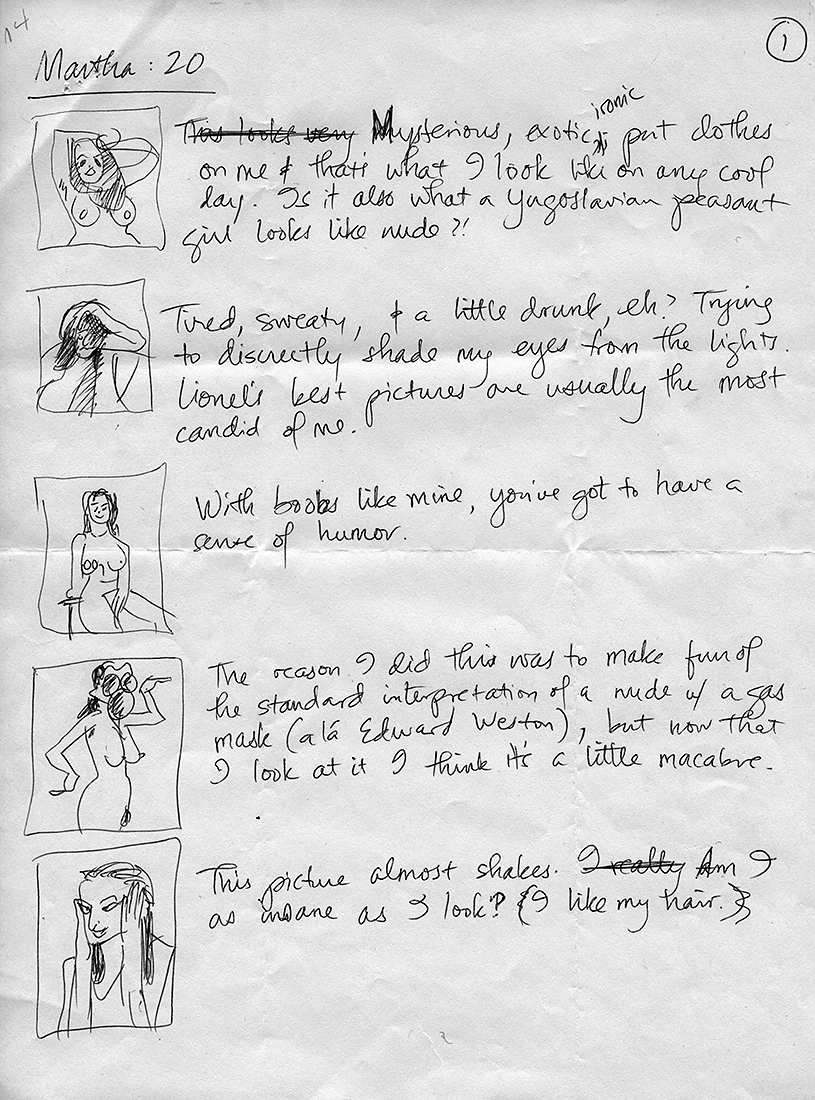 1
Martha: 20
This looks very Mysterious, exotic, ironic put clothes
on me & thats what I look like on any cool
day. Is it also what a Yugoslavian peasant
girl looks like nude?!
Tired, sweaty, & a little drunk, eh? Trying
to discreetly shade my eyes from the lights.
Lionel's best pictures are usually the most
candid of me.
With boobs like mine, you've got to have a
sense of humor.
The reason I did this was to make fun of
the standard interpretation of a nude w/ a gas
mask (a lá Edward Weston), but now that
I look at it I think it's a little macabre.
This picture almost shakes. I really Am I
as insane as I look? {I like my hair.}